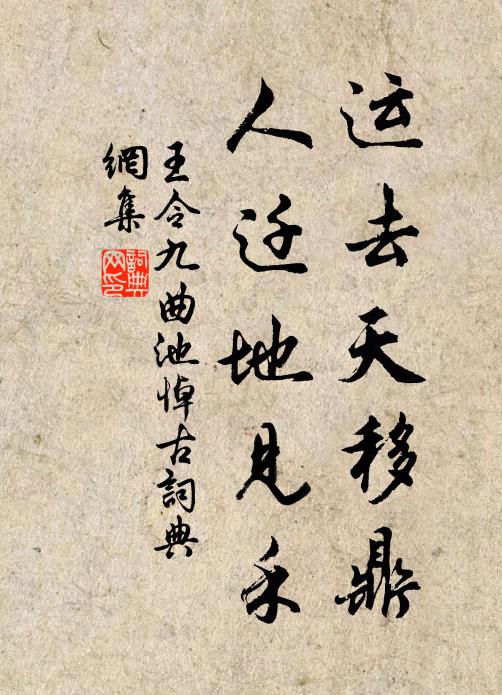 运去天移鼎
人迁地见禾
王令九曲池悼古词典
網集
詞典网印